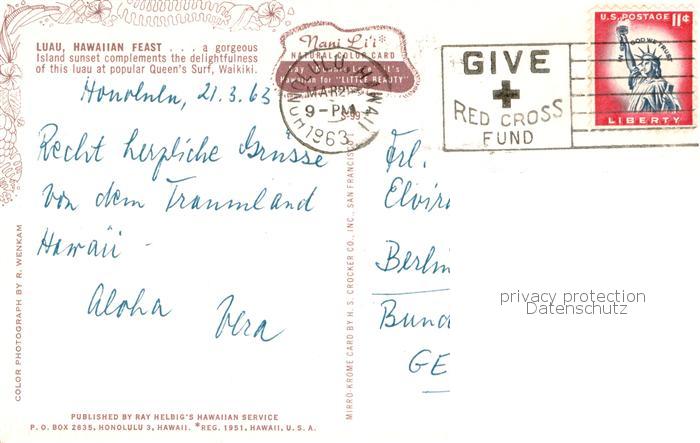 LUAU, HAWAIIAN FEAST . . . . a gorgeous
Island sunset complements the delightfulness
of this luau at popular Queen's Surf, Waikiki.
Honolulu, 21.3.63
Recht herzliche Grüsse
von dem Traumland
Hawaii -
Aloha Vera
COLOR PHOTOGRAPH BY R. WENKAM
PUBLISHED BY RAY HELBIG'S HAWAIIAN SERVICE
P. O. BOX 2835, HONOLULU 3, HAWAII. *REG. 1951, HAWAII, U. S. A.
Nani Li'i*
NATURAL COLOR CARD
Hawaiian for "LITTLE BEAUTY"
S-99
HONOLULU, HAWAII
MAR 21
9-PM
1963
MIRRO-KROME CARD BY H. S. CROCKER CO., INC., SAN FRANCISC
GIVE
RED CROSS
FUND
U.S. POSTAGE 11¢
IN GOD WE TRUST
LIBERTY
Frl.
Elvir
Berlin
Bund
GE
privacy protection
Datenschutz